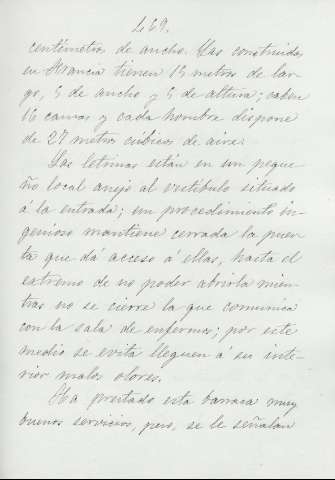 469.
centímetros de ancho. Las construidas
en Francia tienen 15 metros de lar-
go, 5 de ancho y 5 de altura; caben
16 camas y cada hombre dispone
de 27 metros cúbicos de aire.
Las letrinas están en un peque-
ño local anejo al vestíbulo situado
á la entrada; un procedimiento in-
genioso mantiene cerrada la puer-
ta que dá acceso á ellas, hasta el
extremo de no poder abrirla mien-
tras no se cierre la que comunica
con la sala de enfermos; por este
medio se evita lleguen á su inte-
rior malos olores.
Ha prestado esta barraca muy
buenos servicios, pero, se le señalan